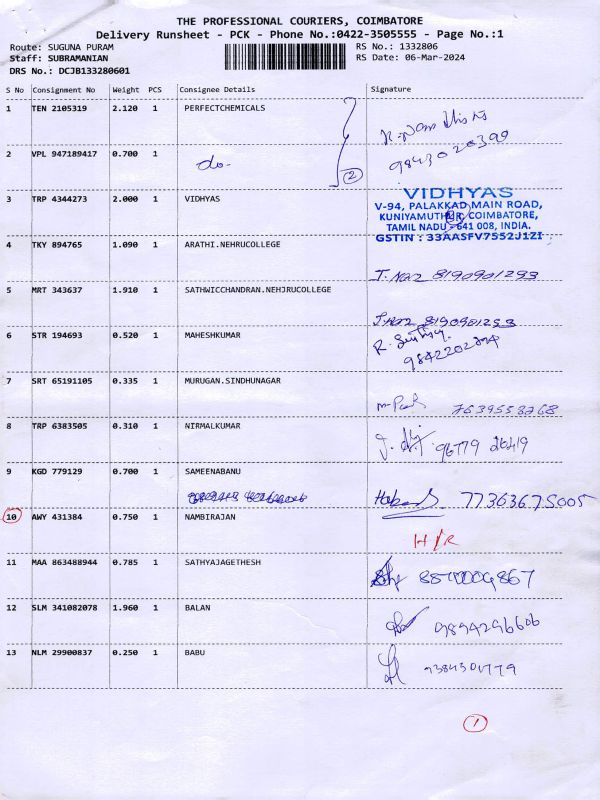 THE PROFESSIONAL COURIERS, COIMBATORE
Delivery Runsheet - PCK - Phone No.:0422-3505555 - Page No.:1
Route: SUGUNA PURAM
RS No.: 1332806
Staff: SUBRAMANIAN
RS Date: 06-Mar-2024
DRS No.: DCJB133280601
S No Consignment No Weight PCS Consignee Details Signature
1 TEN 2105319 2.120 1 PERFECTCHEMICALS
9843020399
2 VPL 947189417 0.700 1 do-
2
3 TRP 4344273 2.000 1 VIDHYAS
VIDHYAS
V-94, PALAKKAD MAIN ROAD,
KUNIYAMUTHUR, COIMBATORE,
TAMIL NADU - 641 008, INDIA.
GSTIN : 33AASFV7552J1ZI
4 TKY 894765 1.090 1 ARATHI.NEHRUCOLLEGE
8190901293
5 MRT 343637 1.910 1 SATHWICCHANDRAN.NEHJRUCOLLEGE
8190901293
6 STR 194693 0.520 1 MAHESHKUMAR
7 SRT 65191105 0.335 1 MURUGAN.SINDHUNAGAR
8 TRP 6383505 0.310 1 NIRMALKUMAR
9 KGD 779129 0.700 1 SAMEENABANU
77363675005
10 AWY 431384 0.750 1 NAMBIRAJAN
H/R
11 MAA 863488944 0.785 1 SATHYAJAGETHESH
12 SLM 341082078 1.960 1 BALAN
9894296606
13 NLM 29900837 0.250 1 BABU
1